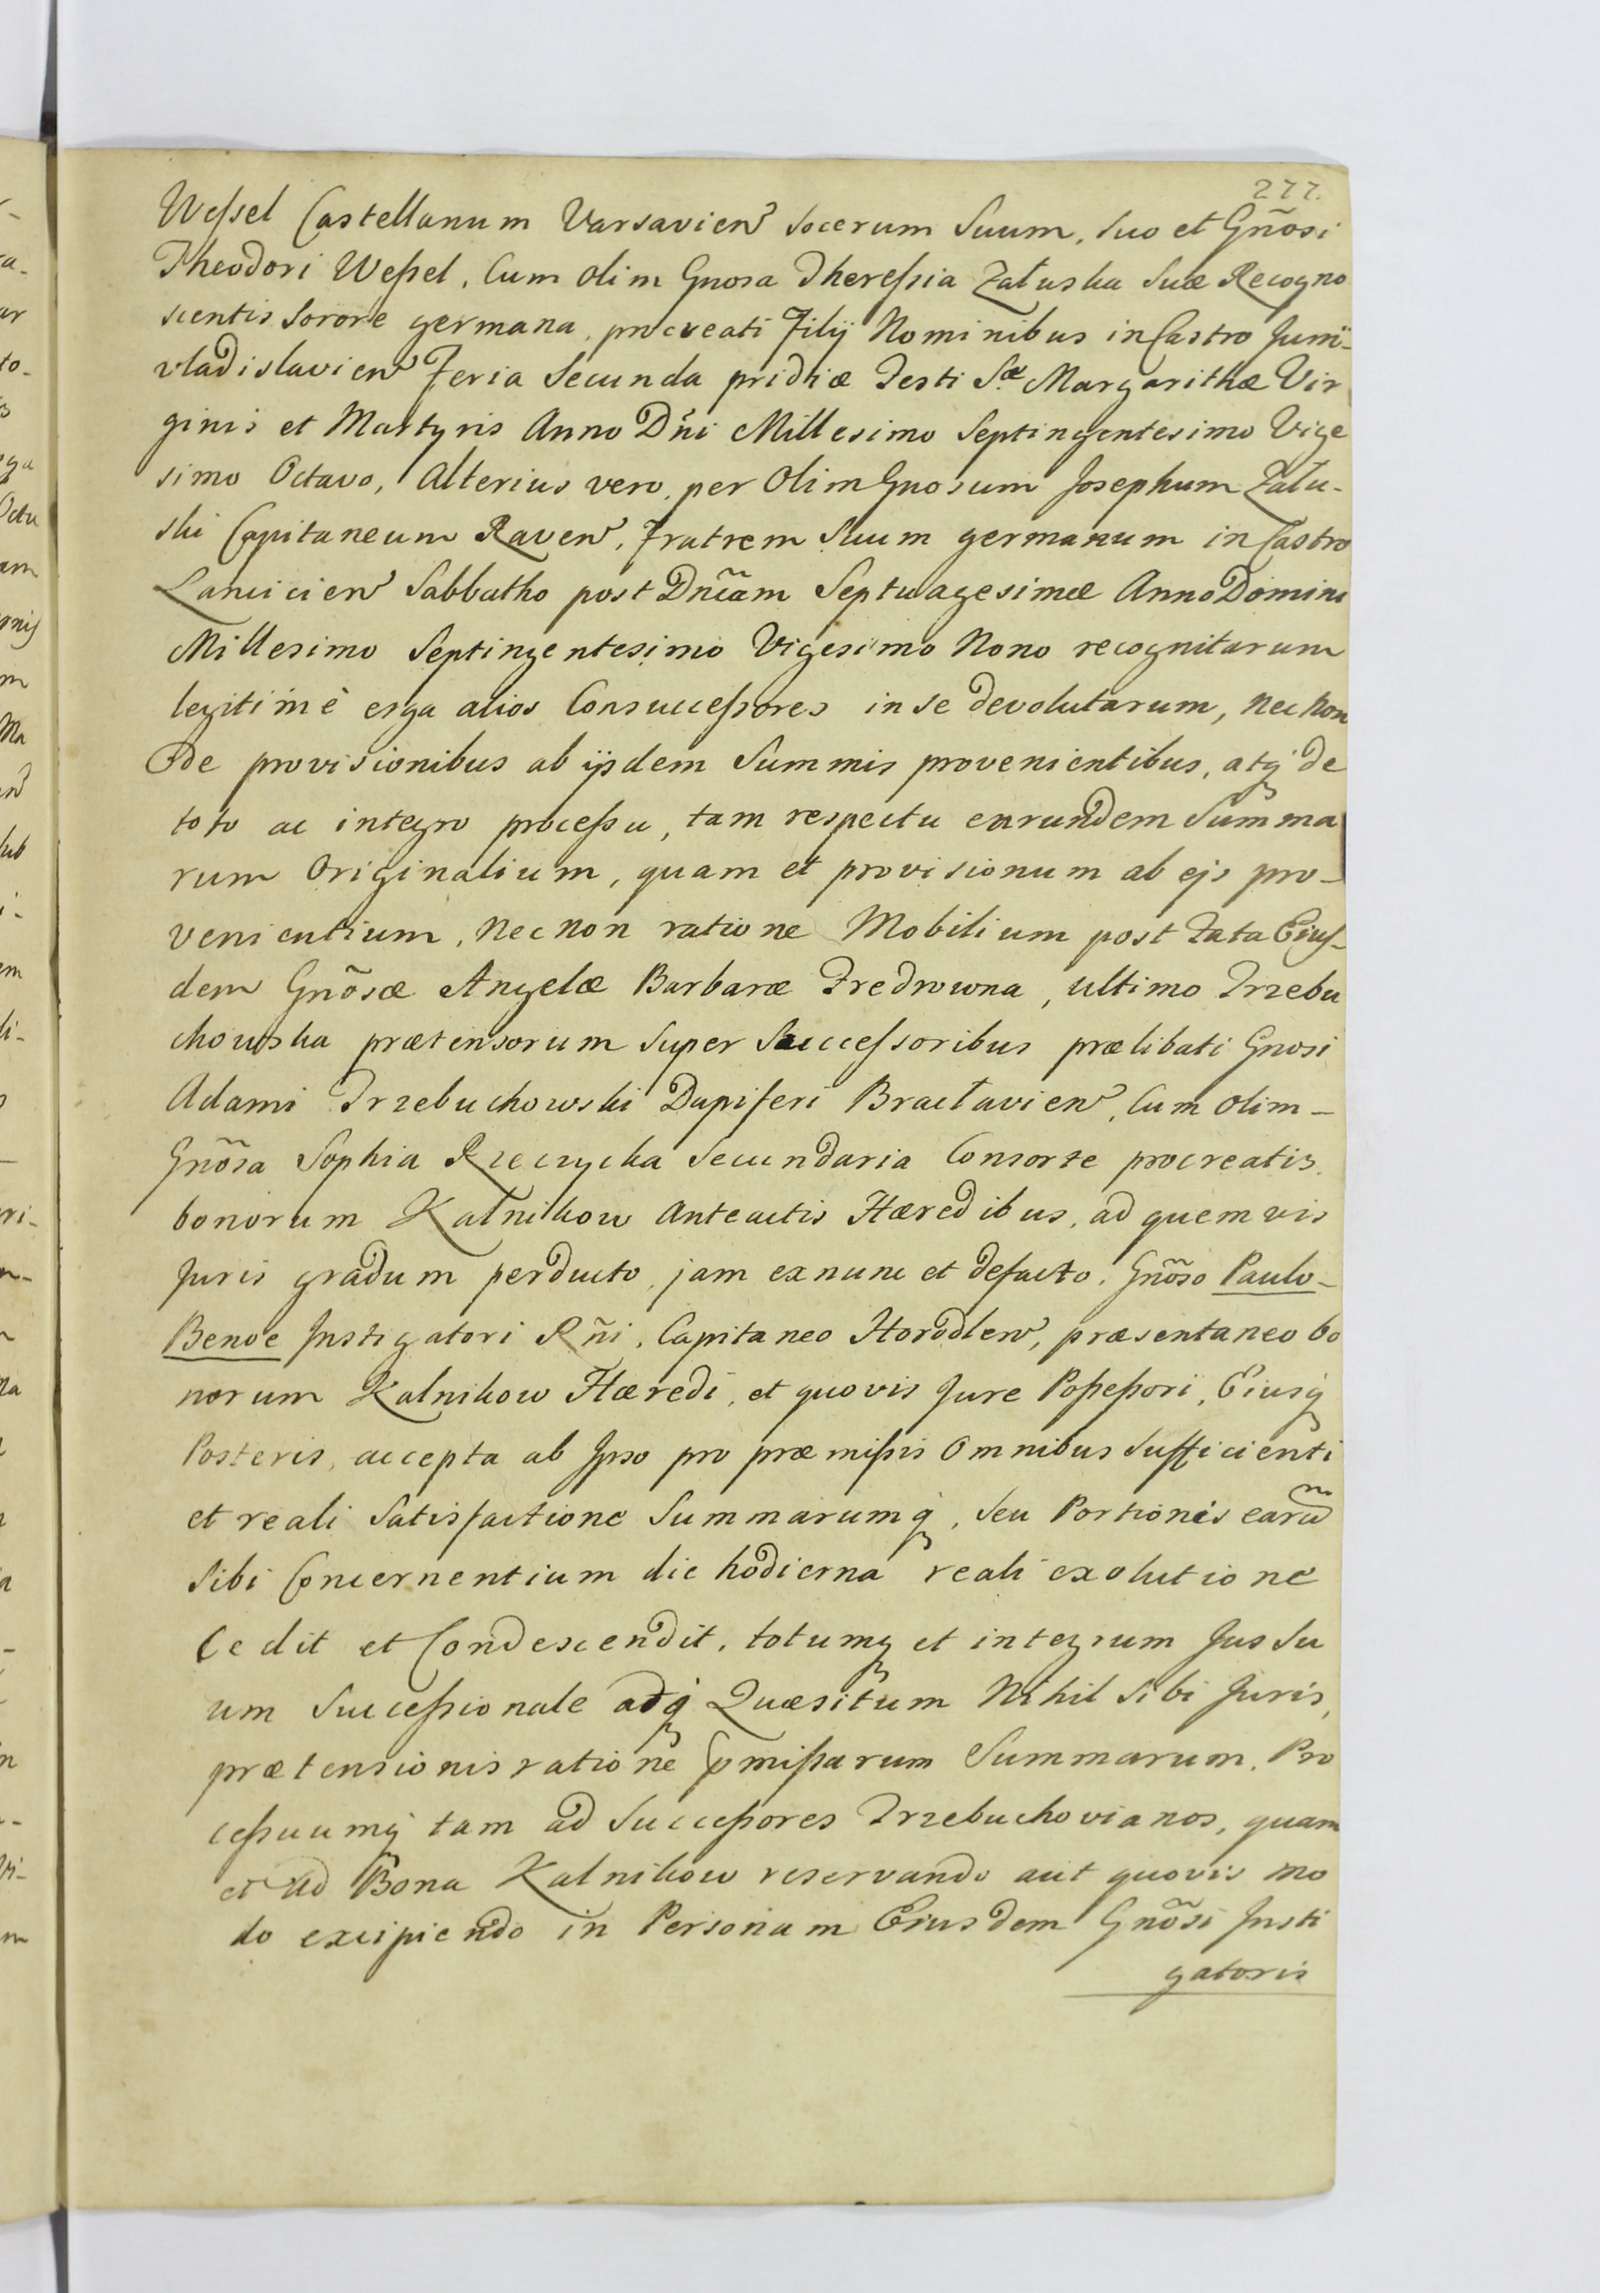 277.
Weſsel Castellanum Varsavien̄ Socerum Suum, Suo et Gñosi
Theodori Weſsel, Cum olim Gnosa Thereſsia Załuska Suæ Recogno
scentis Sorore germana, procreati Filij Nominibus in Castro Juni-
vladislavien̄ Feria Secunda pridiæ Festi Sæ Margarithæ Vir
ginis et Martyris Anno Dñi Millesimo Septingentesimo Vige
simo Octavo, Alterius vero, per Olim Gnosum Josephum Zału-
ski Capitaneum Raven̄, Fratrem Suum germanum in Castro
Lancicien̄ Sabbatho post Dnĩcam Septuagesimæ Anno Domini
Millesimo Septingentesimo Vigesimo Nono recognitarum
legitimè erga alios Consucceſsores in se devolutarum, nec non
de provisionibus ab ijsdem Summis provenientibus, atq́ de
toto ac integro proceſsu, tam respectu earundem Summa
rum Originalium, quam et provisionum ab ejs pro-
venientium, nec non ratione Mobilium post Fata Eius-
dem Gñosæ Angelæ Barbaræ Fredrowna, ultimo Trzebu
chowska prætensorum Super Succeſsoribus prælibati Gnosi
Adami Trzebuchowski Dapiferi Bracłavien̄, Cum olim-
Gñosa Sophia Rzeczycka Secundaria Consorte procreatis
bonorum Kalnikow Anteactis Hæredibus, ad quemvis
Juris gradum perducto, jam ex nunc et de facto, Gñoso Paulo-
Benoe Instigatori Rñi, Capitaneo Horodlen̄, præsentaneo bo
norum Kalnikow Hæredi, et quovis Jure Poſseſsori, Eiusq́
Posteris, accepta ab Ipso pro præmiſsis Omnibus Sufficienti
et reali Satisfactione Summarumq́, Seu Portionis earũ
Sibi Concernentium die hodierna reali exolutione
Cedit et Condescendit, totumq́ et integrum Jus Su
um Succeſsionale adq́ Quæsitum Nihil Sibi Juris,
prætensionis ratione p̃miſsarum Summarum, Pro
ceſsuumq́ tam ad Succeſsores Trzebuchovianos, quam
et ad Bona Kalnikow reservando aut quovis mo
do excipiendo in Personam Eiusdem Gñosi Insti
gatoris